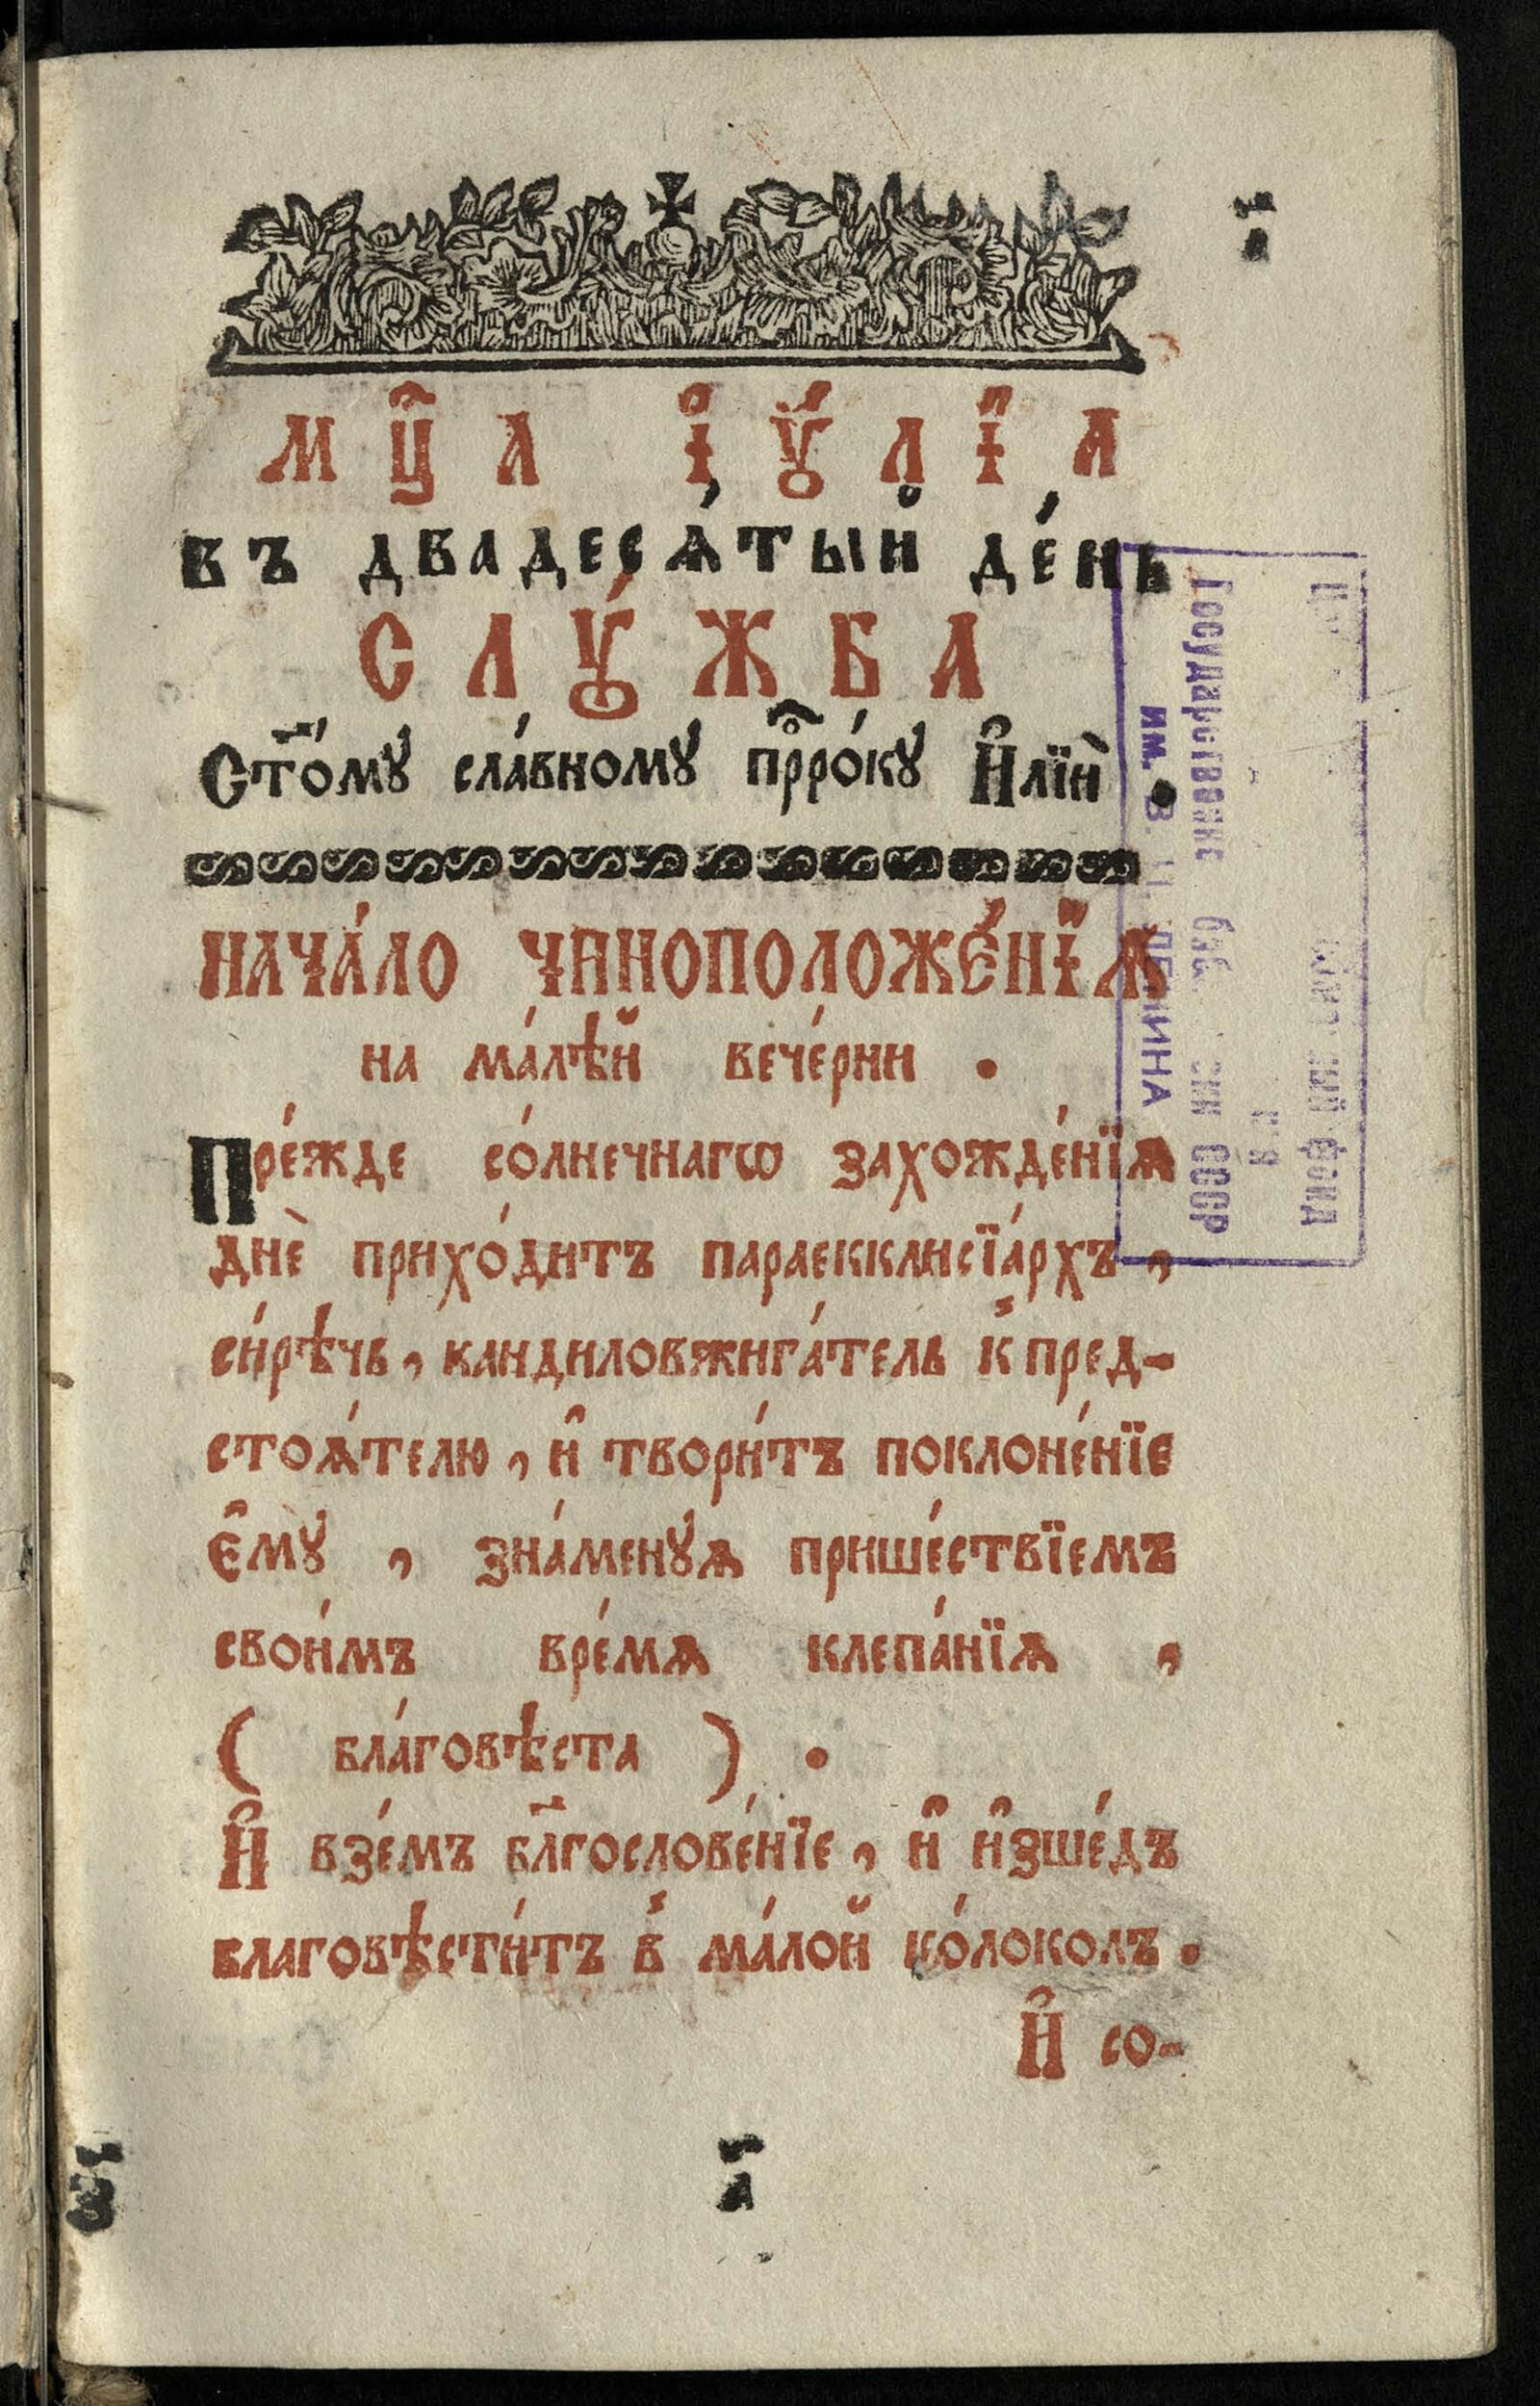 а҃
мц҃а і҆ꙋ́лїа
въ двадесѧ́тый де́нь
слꙋ́жба
Ст҃о́мꙋ сла́вномꙋ прⷪ҇ро́кꙋ И҆лїѝ .
нача́ло чиноположе́нїѧ
на ма́лѣй вече́рни .
Пре́жде со́лнечнагѡ захожде́нїѧ
днѐ прихо́дитъ параекклисїа́рхъ ,
си́рѣчь , кандиловжига́тель к̾ пред-
стоѧ́телю , и҆ твори́тъ поклоне́нїе
є҆мꙋ̀ , зна́менꙋѧ прише́ствїемъ
свои́мъ вре́мѧ клепа́нїѧ ,
( бла́говѣста ) .
И҆ взе́мъ бл҃гослове́нїе , и҆ и҆зше́дъ
благовѣсти́тъ в̾ ма́лой ко́локолъ .
И҆ со-
а҃
Государственн
СССР
им. В. И. ЛЕНИНА
фонд